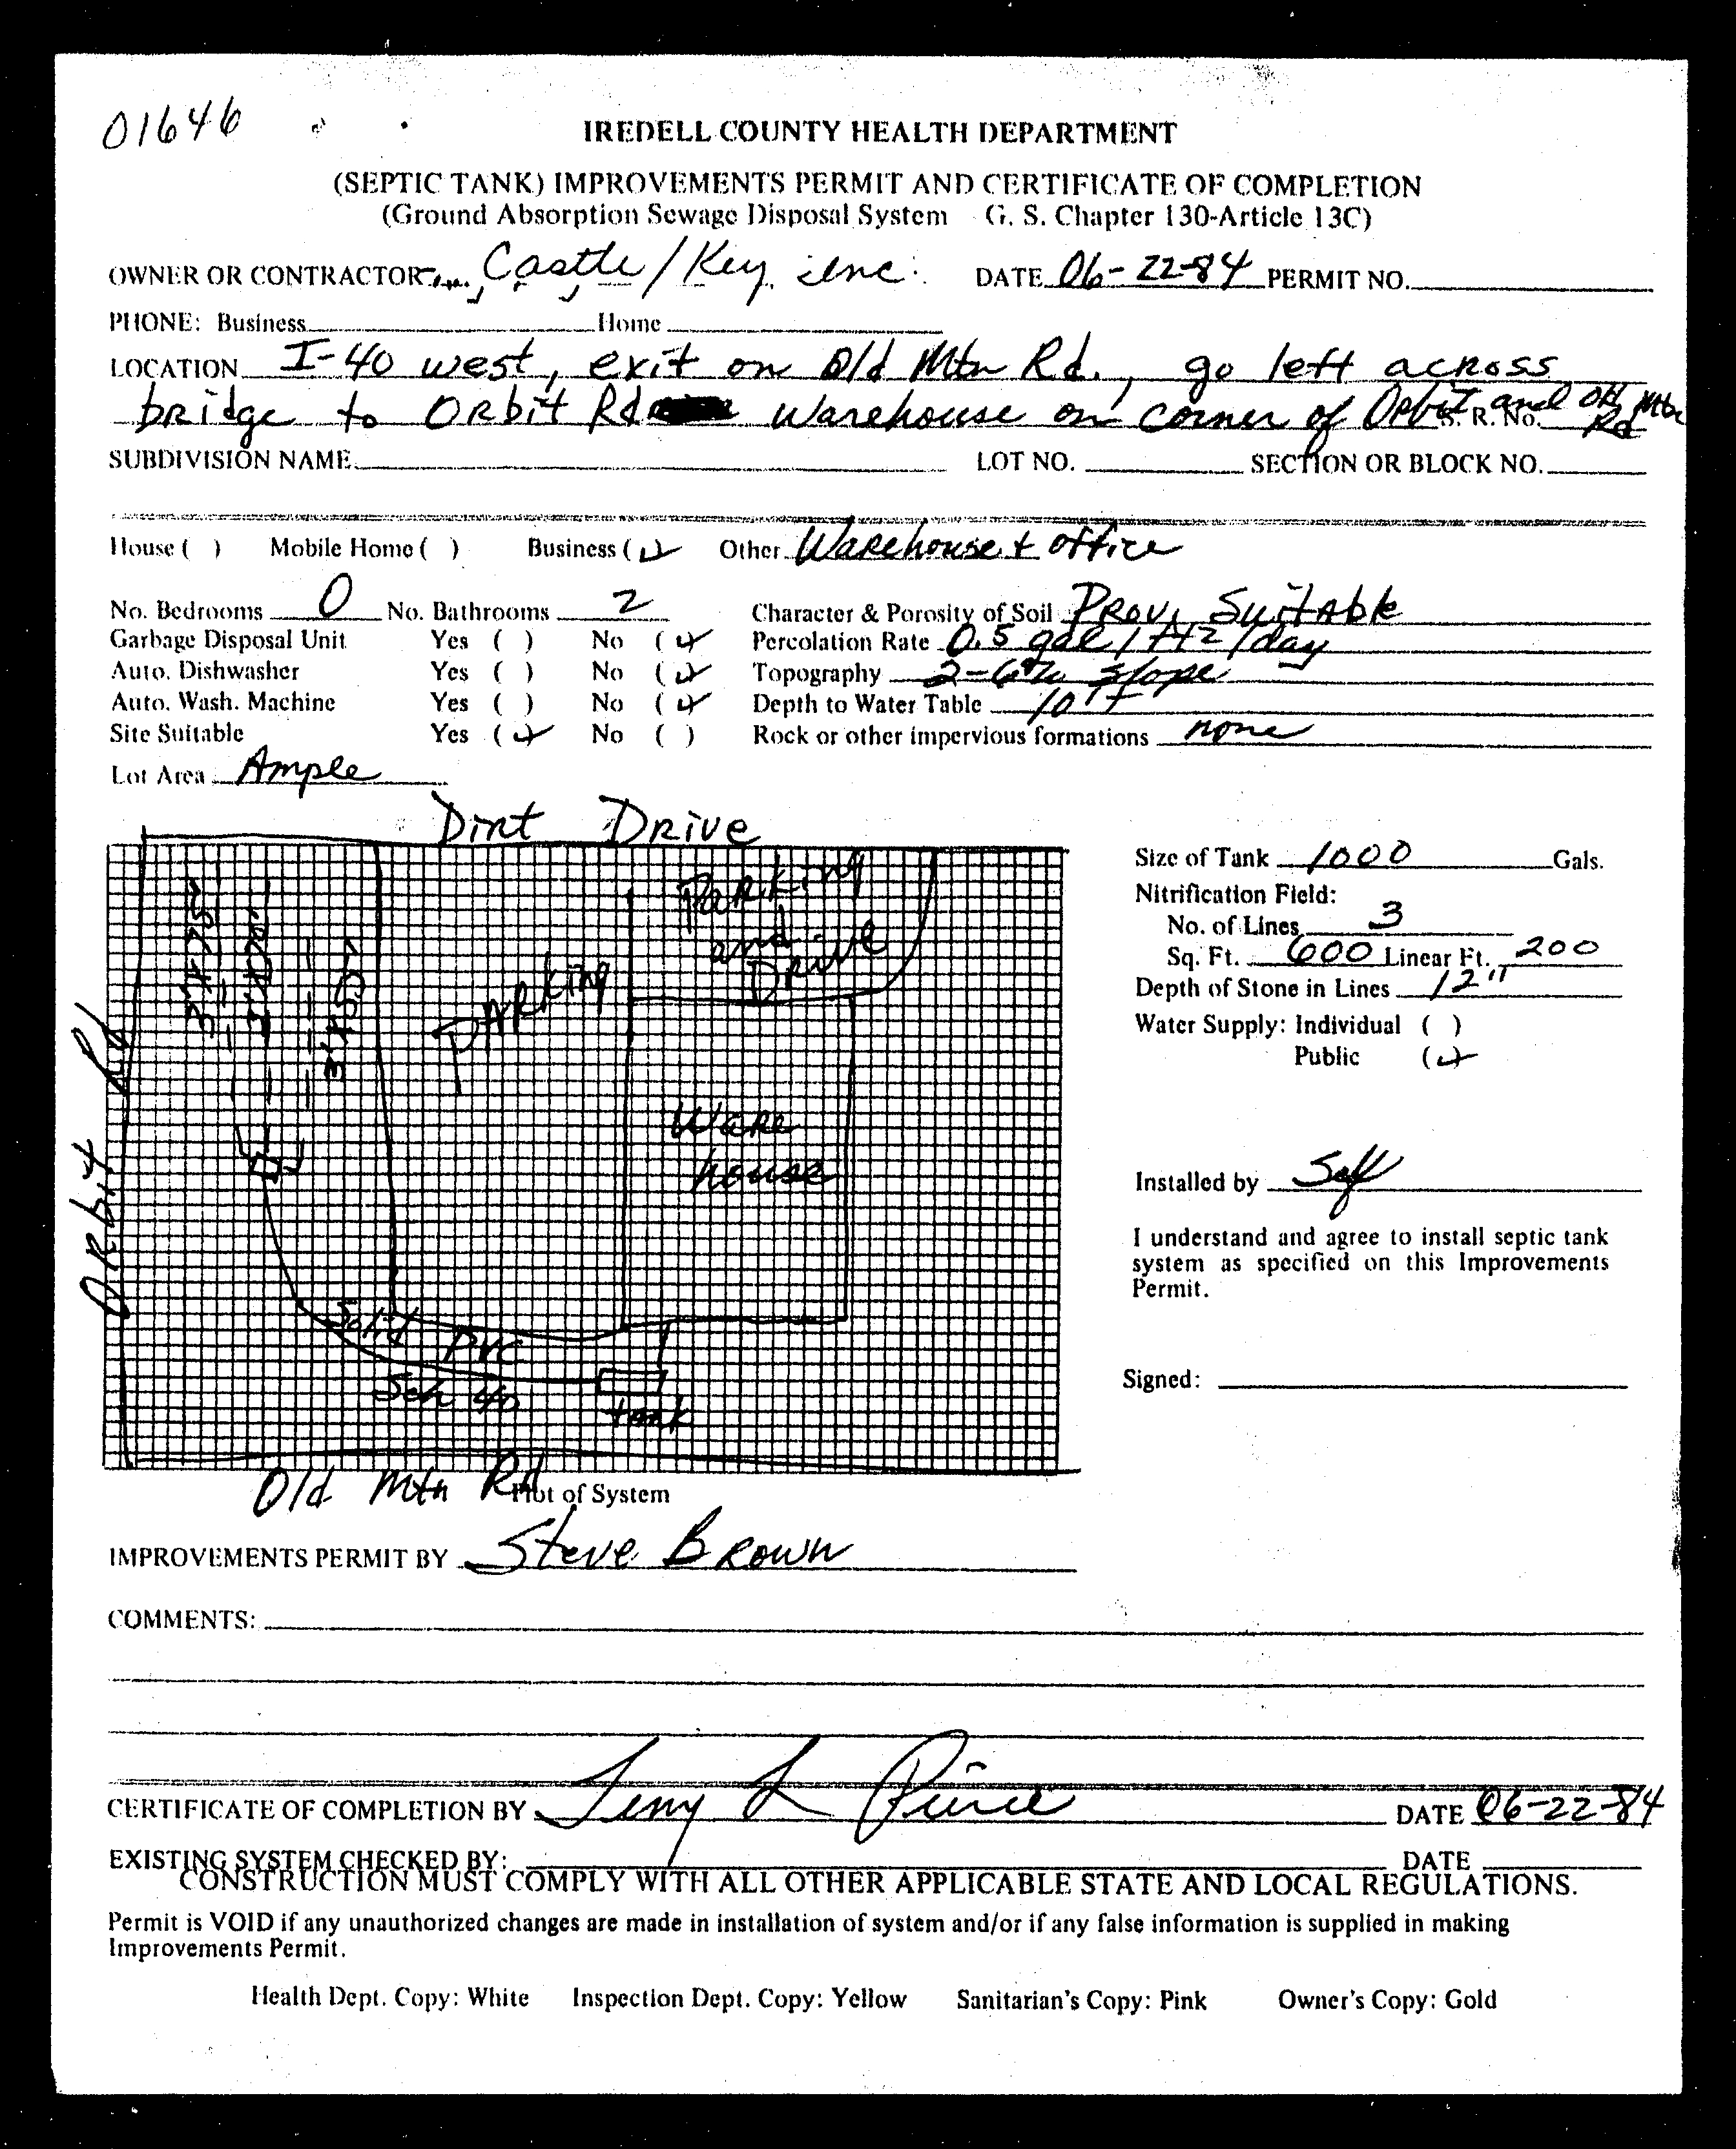 01646
IREDELL COUNTY HEALTH DEPARTMENT
(SEPTIC TANK) IMPROVEMENTS PERMIT AND CERTIFICATE OF COMPLETION
(Ground Absorption Sewage Disposal System G. S. Chapter 130-Article 13C)
OWNER OR CONTRACTOR Castle/Key, inc. DATE 06-22-84 PERMIT NO.
PHONE: Business Home
LOCATION I-40 west, exit on Old Mtn Rd., go left across
bridge to Orbit Rd Warehouse on corner of Orbit and Old Mtn Rd S. R. No.
SUBDIVISION NAME LOT NO. SECTION OR BLOCK NO.
House ( ) Mobile Home ( ) Business (✓) Other Warehouse + office
No. Bedrooms 0 No. Bathrooms 2 Character & Porosity of Soil Prov. Suitable
Garbage Disposal Unit Yes ( ) No (✓) Percolation Rate 0.5 gal/ft2/day
Auto. Dishwasher Yes ( ) No (✓) Topography 2-6% slope
Auto. Wash. Machine Yes ( ) No (✓) Depth to Water Table 10 ft
Site Suitable Yes (✓) No ( ) Rock or other impervious formations none
Lot Area Ample
Dirt Drive
Parking
and
Drive
Parking
Ware
house
Orbit Rd
Solid PVC
Sch 40
tank
Old Mtn Rd
Plot of System
Size of Tank 1000 Gals.
Nitrification Field:
No. of Lines 3
Sq. Ft. 600 Linear Ft. 200
Depth of Stone in Lines 12"
Water Supply: Individual ( )
Public (✓)
Installed by Self
I understand and agree to install septic tank
system as specified on this Improvements
Permit.
Signed:
IMPROVEMENTS PERMIT BY Steve Brown
COMMENTS:
CERTIFICATE OF COMPLETION BY L DATE 06-22-84
EXISTING SYSTEM CHECKED BY: DATE
CONSTRUCTION MUST COMPLY WITH ALL OTHER APPLICABLE STATE AND LOCAL REGULATIONS.
Permit is VOID if any unauthorized changes are made in installation of system and/or if any false information is supplied in making
Improvements Permit.
Health Dept. Copy: White Inspection Dept. Copy: Yellow Sanitarian's Copy: Pink Owner's Copy: Gold